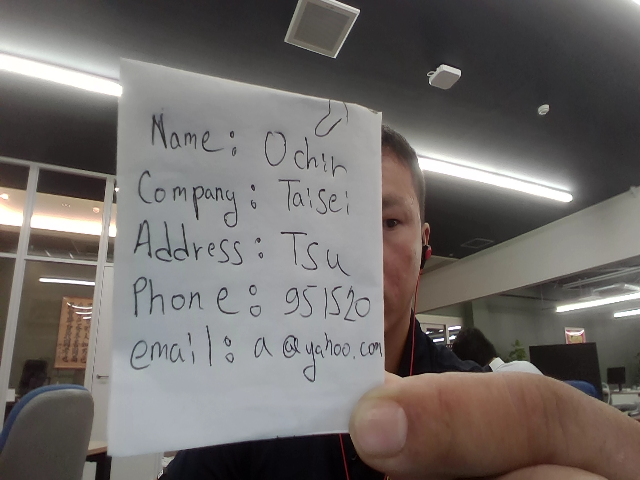 Name: Ochir
Company: Taisei
Address: Tsu
Phone: 951520
email: a@yahoo.com